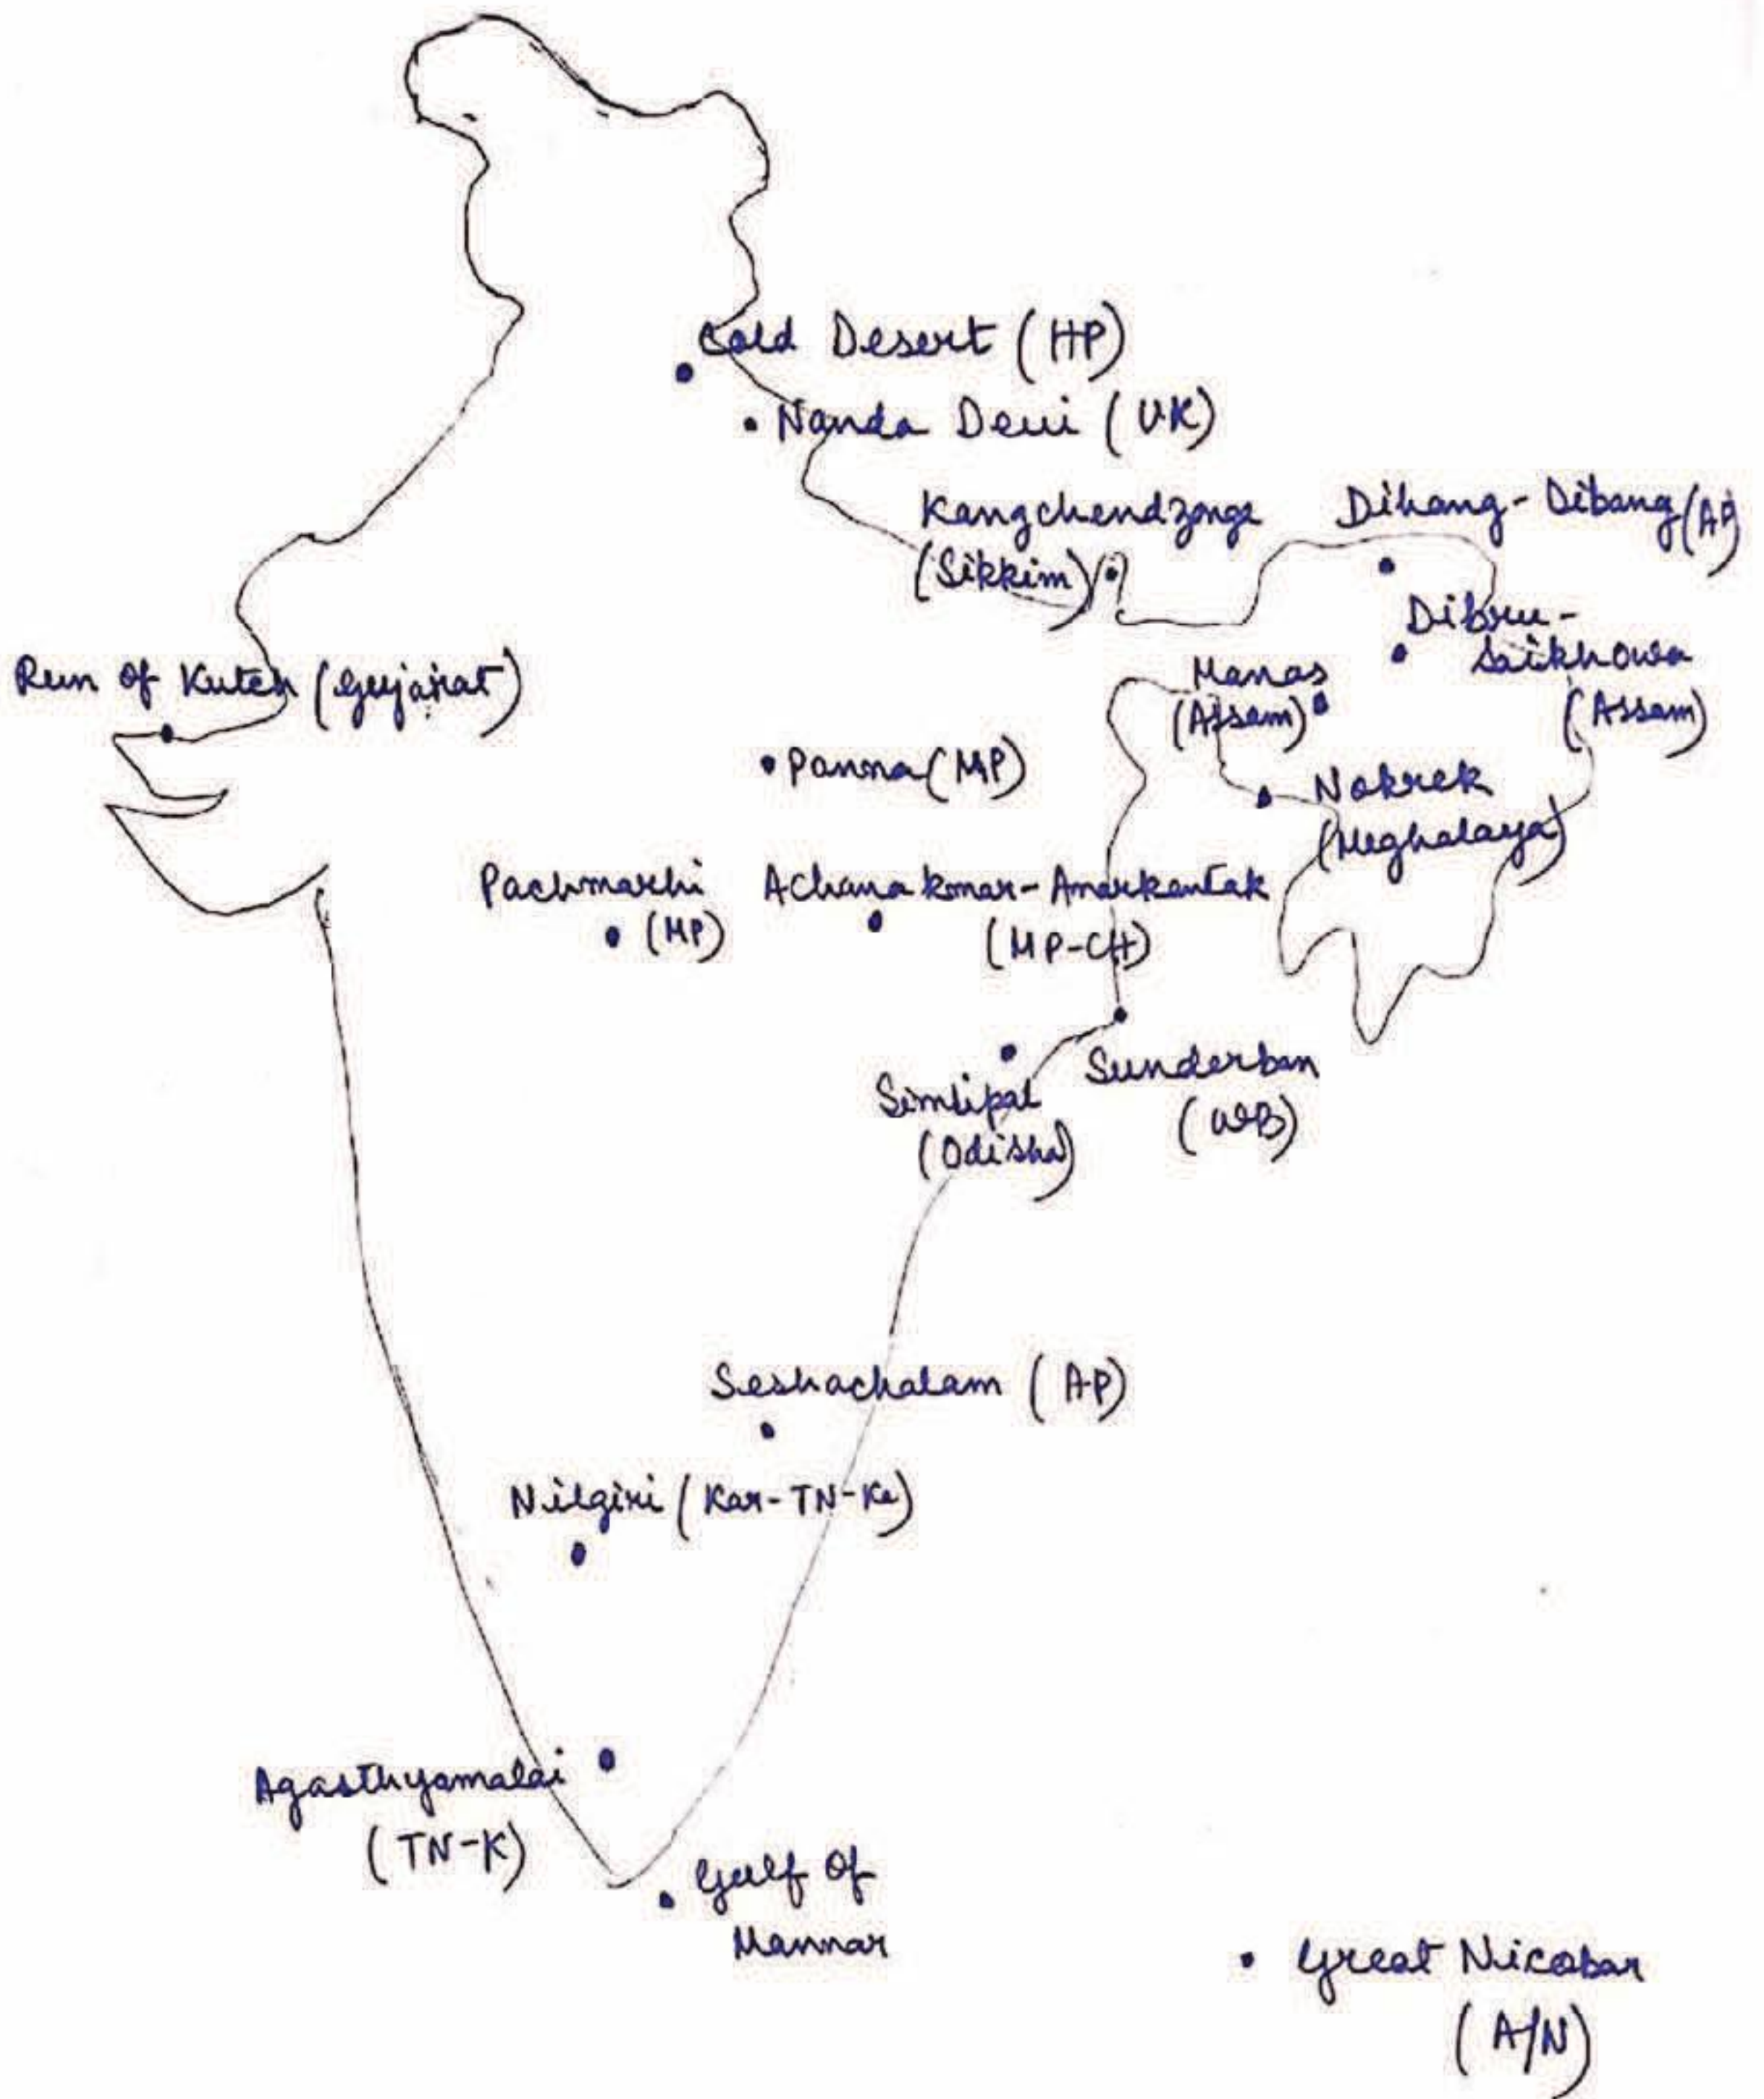 Cold Desert (HP)
Nanda Devi (UK)
Kangchendzonga
(Sikkim)
Dihang-Dibang (AP)
Dibru-
Saikhowa
(Assam)
Manas
(Assam)
Run Of Kutch (Gujarat)
Panna (MP)
Nokrek
(Meghalaya)
Pachmarhi
(MP)
Achanakmar-Amarkantak
(MP-CH)
Simlipal
(Odisha)
Sunderban
(WB)
Seshachalam (AP)
Nilgiri (Kar-TN-Ke)
Agasthyamalai
(TN-K)
Gulf Of
Mannar
Great Nicobar
(A/N)